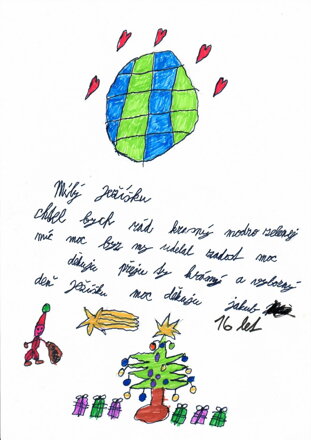 Milý Ježíšku
chtěl bych rád krasný modro zelený
míč moc bys mi udelal radost moc
děkuju přeju ty krásný a
deň Ježíšku moc děkuju jakub
16 let